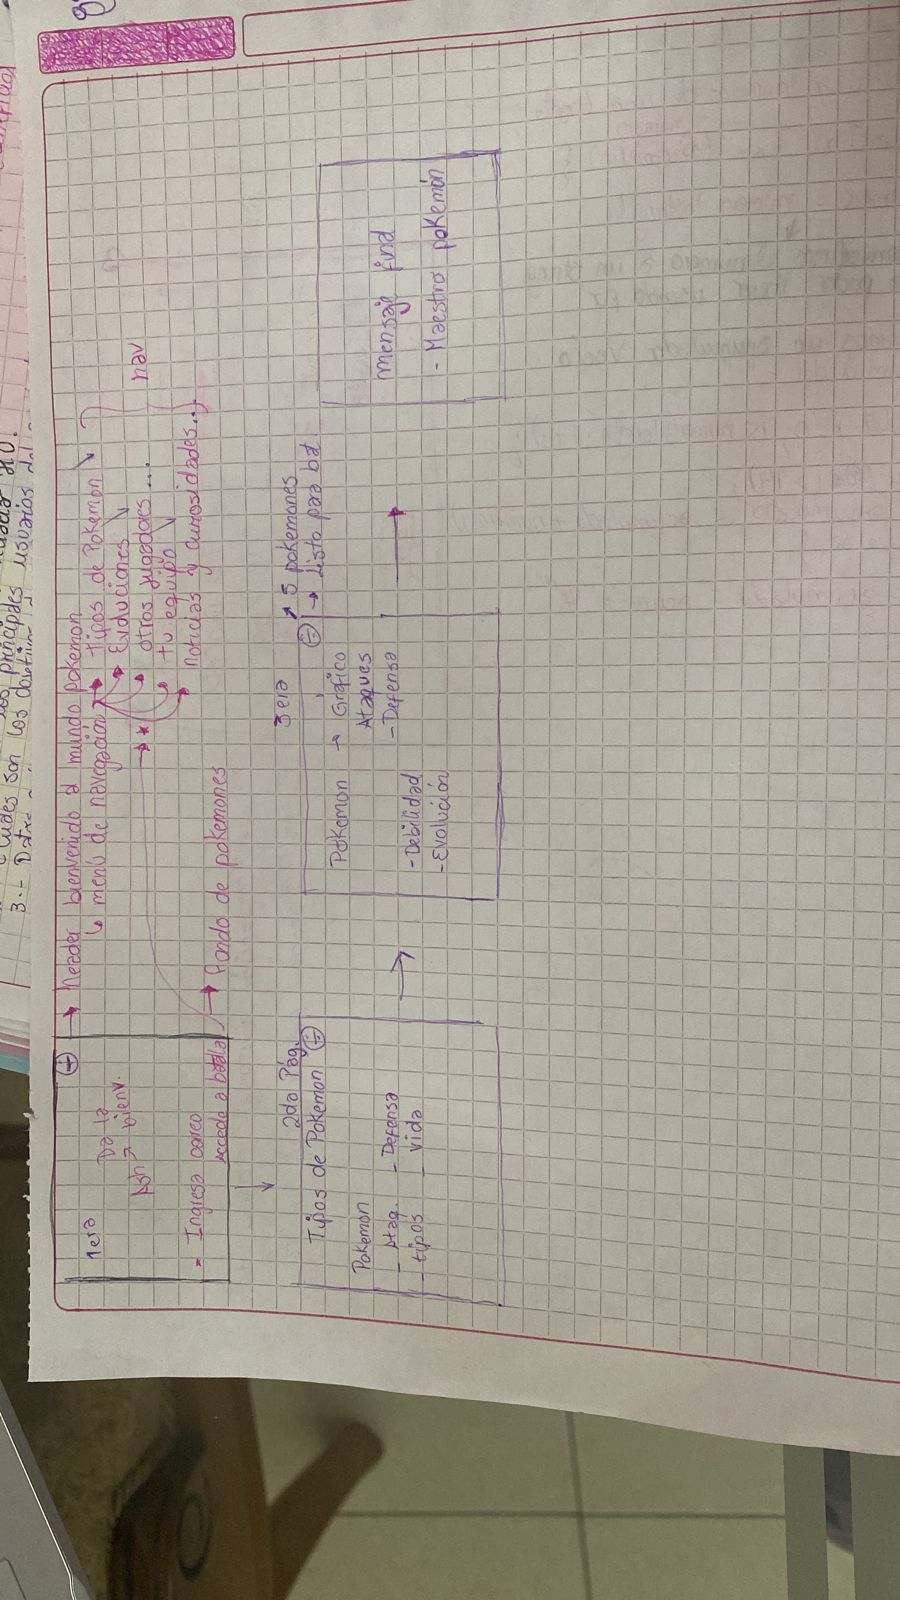 principales usuarios del
3.- Dat
1era
Da la
Ash → bienv.
- Ingresa correo
Accede a batalla
→ header bienvenido a mundo pokemon
↳ menú de navegación
→ tipos de Pokemon
→ Evoluciones
→ otros jugadores ...
→ tu equipo
→ noticias y curiosidades...
nav
→ *
→ fondo de pokemones
2da Pág.
Tipos de Pokemon
Pokemon
- Ataq. - Defensa
- tipos - vida
3era
↗ 5 pokemones
→ Listo para bat
Pokemon → Gráfico
Ataques
- Defensa
- Debilidad
- Evolución
mensaje final
- Maestro pokemón